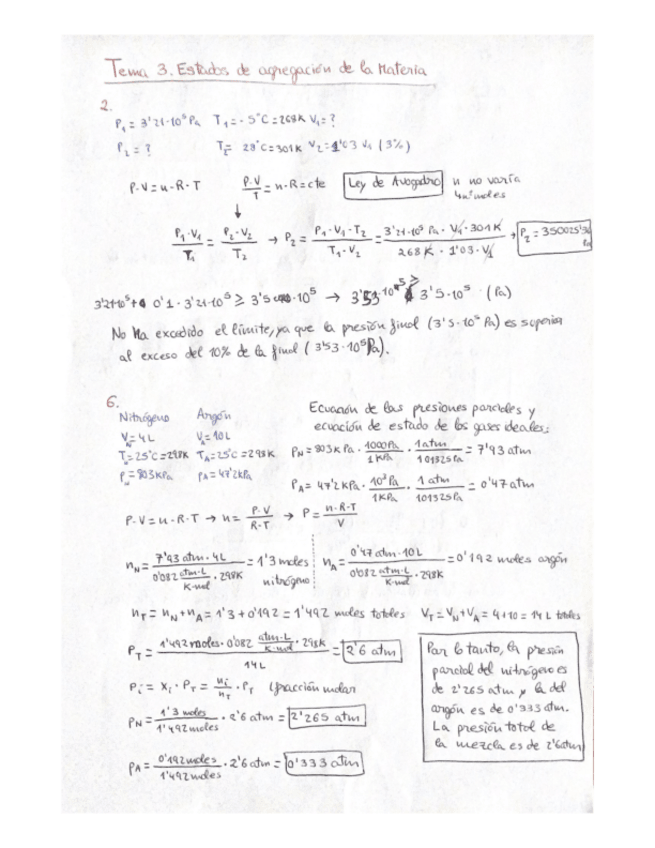 Tema 3. Estados de agregación de la Materia
2.
P₁ = 3'21·10⁵ Pa T₁ = -5°C = 268K V₁ = ?
P₂ = ? T₂ = 28°C = 301K V₂ = 1'03 V₁ (3%)
P·V = n·R·T P·V/T = n·R = cte Ley de Avogadro n no varía
↓ nº moles
P₁·V₁/T₁ = P₂·V₂/T₂ → P₂ = P₁·V₁·T₂/T₁·V₂ = 3'21·10⁵ Pa·V₁·301K/268K·1'03·V₁ → P₂ = 350025'36 Pa
3'21·10⁵ + 0'1·3'21·10⁵ ≥ 3'5·10⁵ → 3'53·10⁵ ≥ 3'5·10⁵ (Pa)
No ha excedido el límite, ya que la presión final (3'5·10⁵ Pa) es superior
al exceso del 10% de la final (3'53·10⁵ Pa).
6.
Nitrógeno Argón
V_N = 4L V_A = 10L
T_N = 25°C = 298K T_A = 25°C = 298K
P_N = 803kPa P_A = 47'2kPa
Ecuación de las presiones parciales y
ecuación de estado de los gases ideales:
P_N = 803kPa · 1000Pa/1kPa · 1atm/101325Pa = 7'93 atm
P_A = 47'2 kPa · 10³Pa/1kPa · 1 atm/101325Pa = 0'47 atm
P·V = n·R·T → n = P·V/R·T → P = n·R·T/V
n_N = 7'93 atm·4L/0'082 atm·L/K·mol · 298K = 1'3 moles nitrógeno
n_A = 0'47 atm·10L/0'082 atm·L/K·mol · 298K = 0'192 moles argón
n_T = n_N + n_A = 1'3 + 0'192 = 1'492 moles totales V_T = V_N + V_A = 4 + 10 = 14 L totales
P_T = 1'492 moles·0'082 atm·L/K·mol · 298K/14L = 2'6 atm
P_i = X_i · P_T = n_i/n_T · P_T (fracción molar
P_N = 1'3 moles/1'492 moles · 2'6 atm = 2'265 atm
P_A = 0'192 moles/1'492 moles · 2'6 atm = 0'333 atm
Por lo tanto, la presión
parcial del nitrógeno es
de 2'265 atm y la del
argón es de 0'333 atm.
La presión total de
la mezcla es de 2'6 atm